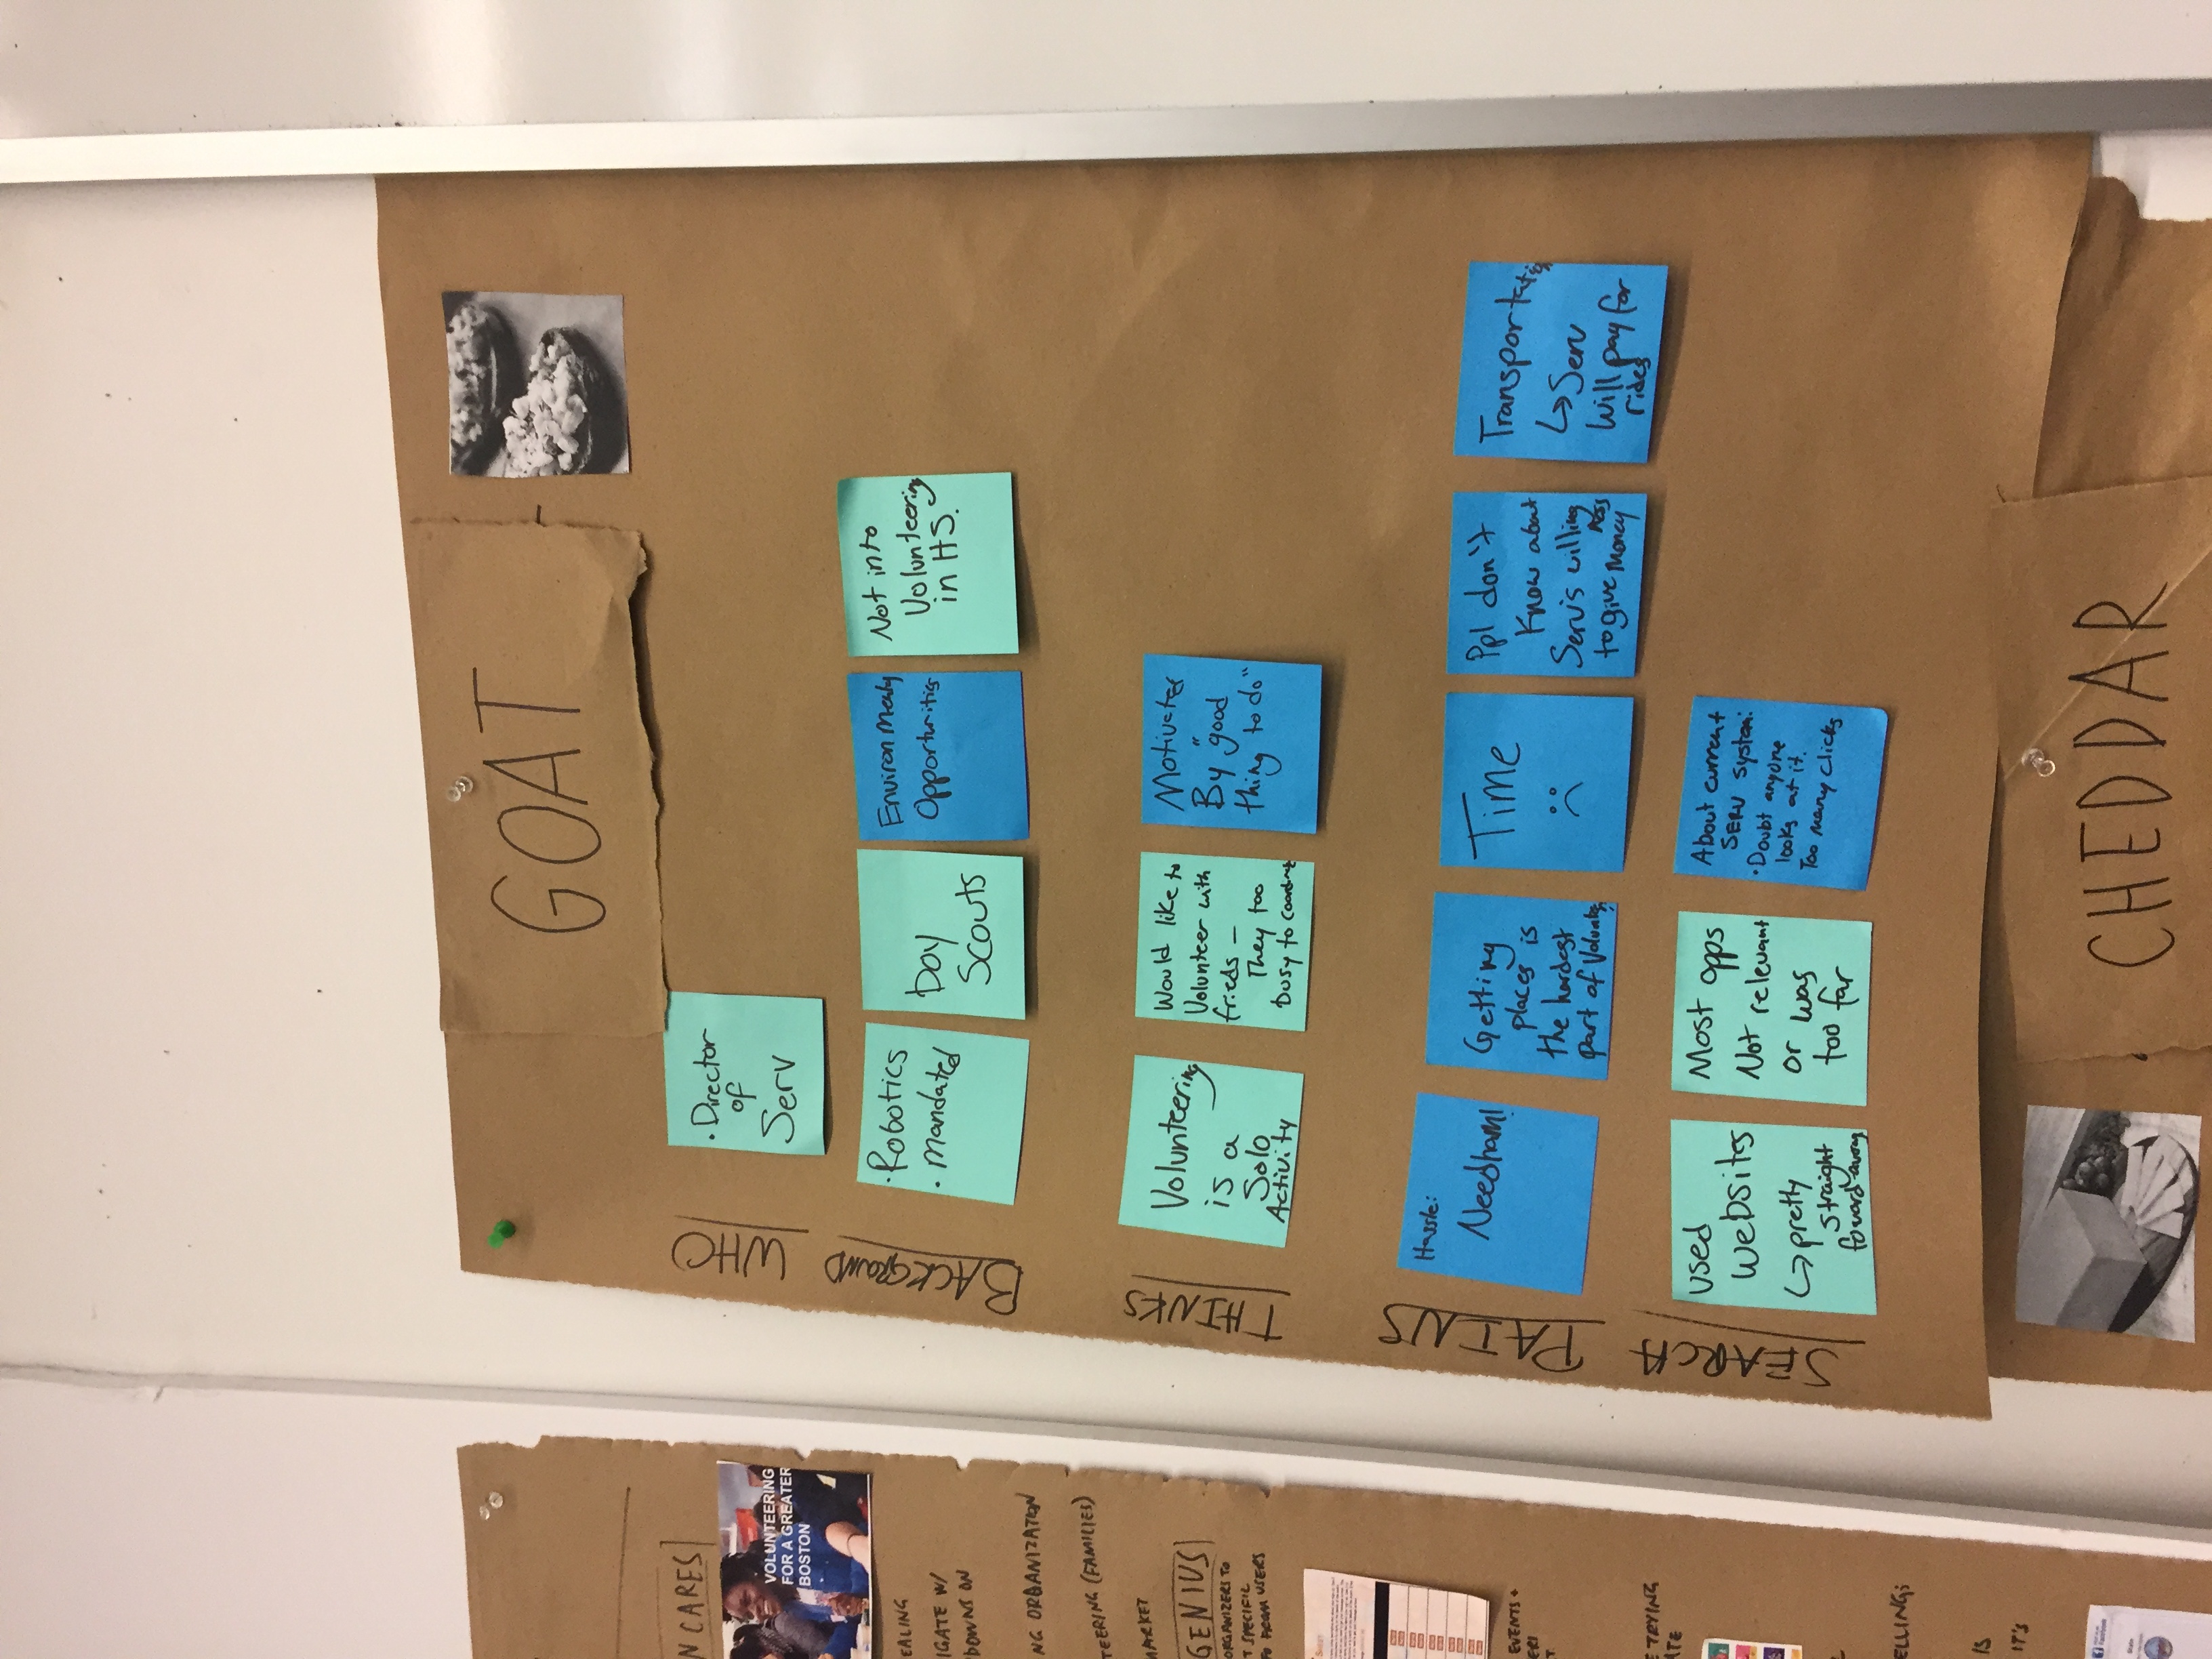 N CARES
VOLUNTEERING
FOR A GREATER
BOSTON
EALING
IGATE W/
DOWNS ON
NG ORGANIZATION
TEERING (FAMILIES)
MARKET
GENIUS
ORGANIZERS TO
T SPECIFIC
FO FROM USERS
EVENTS +
E TRYING
ATE
ELLING;
IS
IT'S
GOAT
WHO
• Director
of
Serv
BACKGROUND
• Robotics
• Mandated
Boy
Scouts
Opportunities
Not into
Volunteering
in HS.
THINKS
Volunteering
is a
Solo
Activity
Would like to
Volunteer with
frieds —
They too
busy to
Motivates
By "good
thing to do"
PAINS
Hassle:
Needham!
Getting
places is
the hardest
part of
Time
Ppl don't
Know about
Serv's willing
ness
to give Money
Transportation
↳ Serv
will pay for
rides
SEARCH
Used
Websites
↳ pretty
straight
foward
Most opps
Not relevant
or was
too far
About current
SERV system:
• Doubt anyone
looks at it.
Too many clicks
CHEDDAR